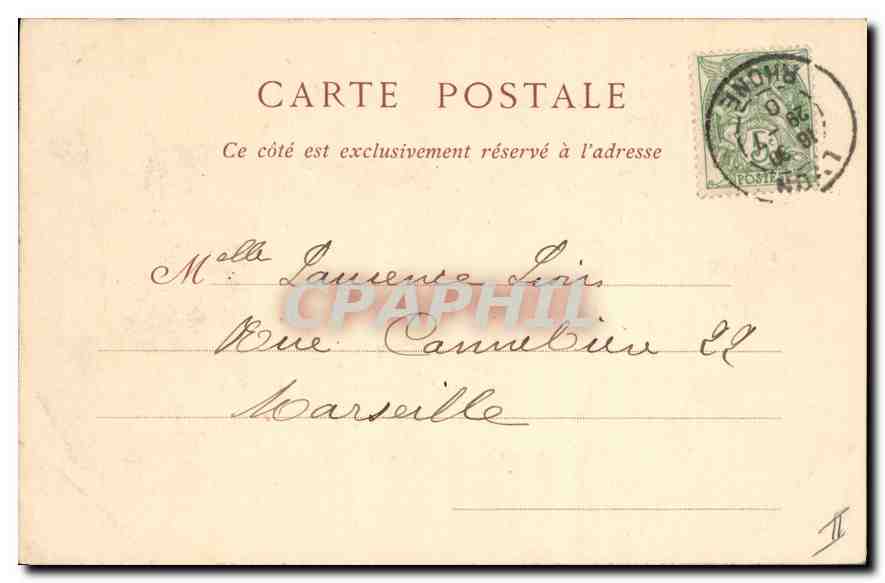 CARTE POSTALE
Ce côté est exclusivement réservé à l'adresse
LYON
RHONE
5
POSTE
Melle Laurence
CPAPHIL
Rue Cannebière 22
Marseille
II